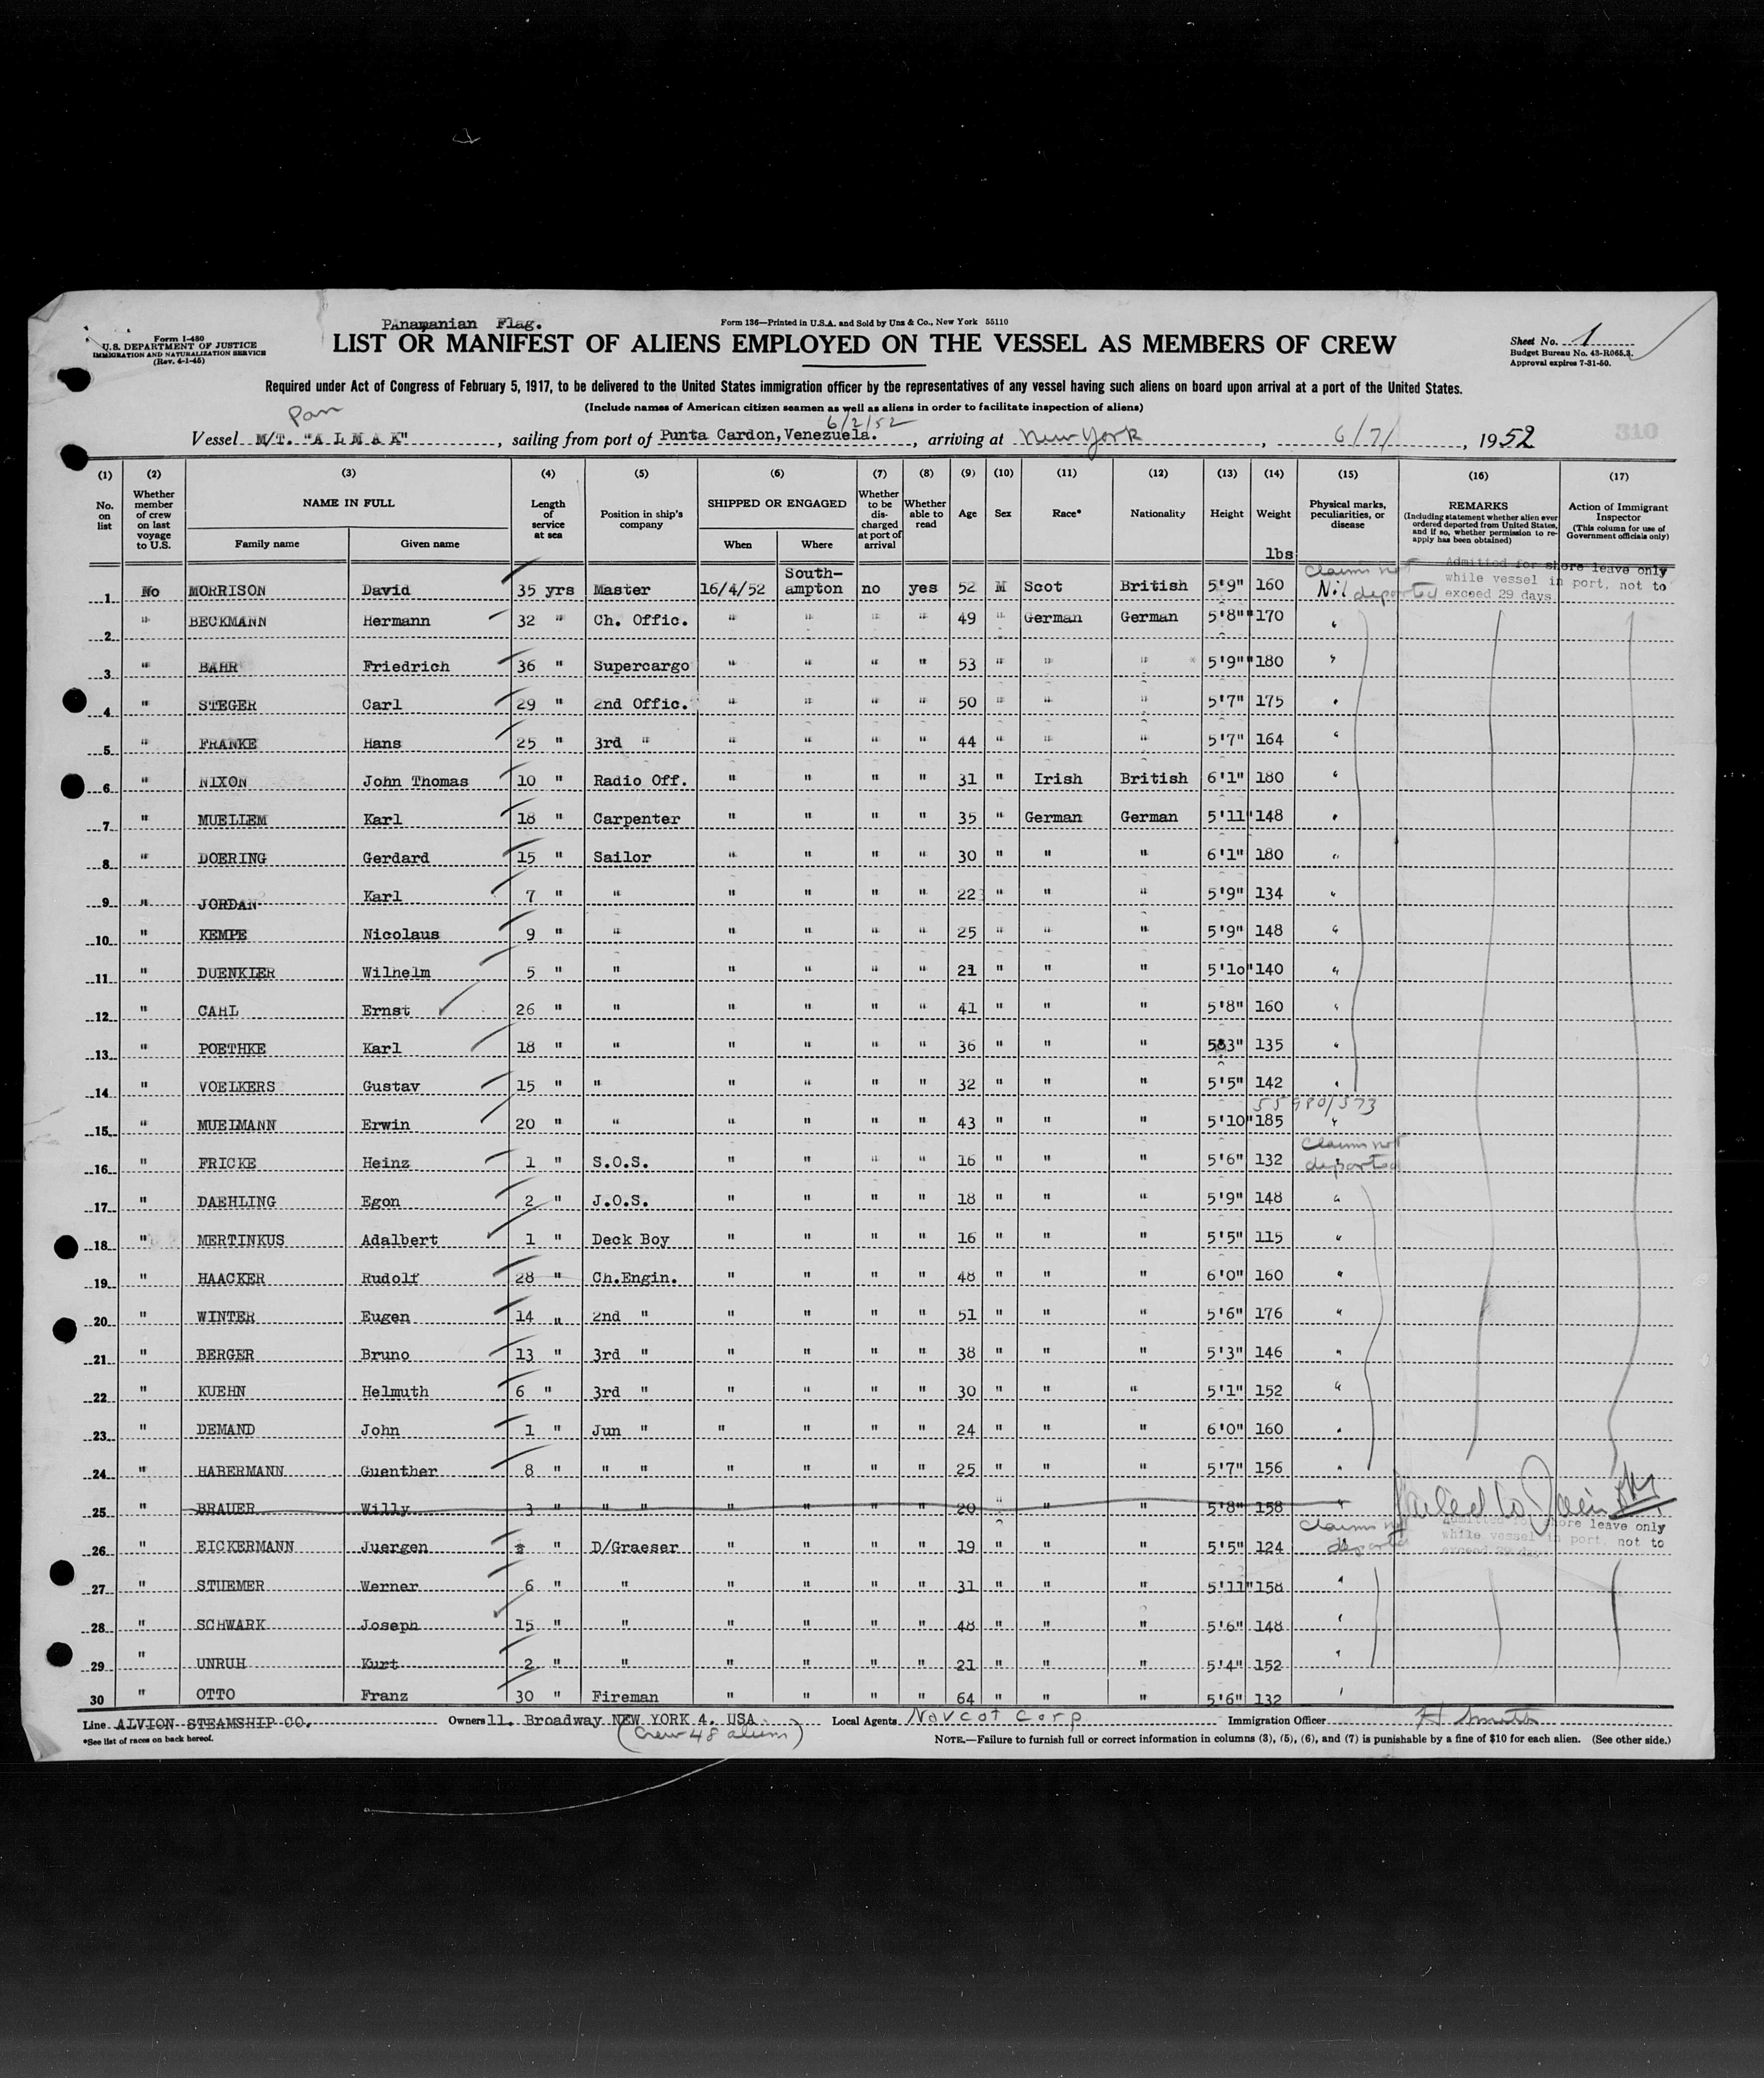 PAnamanian Flag.
Form 136—Printed in U.S.A. and Sold by Uns & Co., New York 55110
Form I-480
U.S. DEPARTMENT OF JUSTICE
IMMIGRATION AND NATURALIZATION SERVICE
(Rev. 4-1-45)
LIST OR MANIFEST OF ALIENS EMPLOYED ON THE VESSEL AS MEMBERS OF CREW
Sheet No. 1
Budget Bureau No. 43-R065.3.
Approval expires 7-31-50.
Required under Act of Congress of February 5, 1917, to be delivered to the United States immigration officer by the representatives of any vessel having such aliens on board upon arrival at a port of the United States.
(Include names of American citizen seamen as well as aliens in order to facilitate inspection of aliens)
Pan
6/2/52
Vessel M/T. "A L M A K" , sailing from port of Punta Cardon, Venezuela. , arriving at New York , 6/7/ , 1952
310
(1) (2) (3) (4) (5) (6) (7) (8) (9) (10) (11) (12) (13) (14) (15) (16) (17)
No. on list
Whether member of crew on last voyage to U.S.
NAME IN FULL
Family name
Given name
Length of service at sea
Position in ship's company
SHIPPED OR ENGAGED
When
Where
Whether to be discharged at port of arrival
Whether able to read
Age
Sex
Race*
Nationality
Height
Weight
lbs
Physical marks, peculiarities, or disease
REMARKS
(Including statement whether alien ever ordered deported from United States, and if so, whether permission to reapply has been obtained)
Action of Immigrant Inspector
(This column for use of Government officials only)
1 No MORRISON David 35 yrs Master 16/4/52 South-ampton no yes 52 M Scot British 5'9" 160 Nil claims not deported Admitted for shore leave only while vessel in port, not to exceed 29 days
2 " BECKMANN Hermann 32 " Ch. Offic. " " " " 49 " German German 5'8" 170 "
3 " BAHR Friedrich 36 " Supercargo " " " " 53 " " " 5'9" 180 "
4 " STEGER Carl 29 " 2nd Offic. " " " " 50 " " " 5'7" 175 "
5 " FRANKE Hans 25 " 3rd " " " " " 44 " " " 5'7" 164 "
6 " NIXON John Thomas 10 " Radio Off. " " " " 31 " Irish British 6'1" 180 "
7 " MUELLEM Karl 18 " Carpenter " " " " 35 " German German 5'11" 148 "
8 " DOERING Gerdard 15 " Sailor " " " " 30 " " " 6'1" 180 "
9 " JORDAN Karl 7 " " " " " " 22 " " " 5'9" 134 "
10 " KEMPE Nicolaus 9 " " " " " " 25 " " " 5'9" 148 "
11 " DUENKIER Wilhelm 5 " " " " " " 21 " " " 5'10" 140 "
12 " CAHL Ernst 26 " " " " " " 41 " " " 5'8" 160 "
13 " POETHKE Karl 18 " " " " " " 36 " " " 5'3" 135 "
14 " VOELKERS Gustav 15 " " " " " " 32 " " " 5'5" 142 "
55980/573
15 " MUEIMANN Erwin 20 " " " " " " 43 " " " 5'10" 185 "
16 " FRICKE Heinz 1 " S.O.S. " " " " 16 " " " 5'6" 132 claims not deported
17 " DAEHLING Egon 2 " J.O.S. " " " " 18 " " " 5'9" 148 "
18 " MERTINKUS Adalbert 1 " Deck Boy " " " " 16 " " " 5'5" 115 "
19 " HAACKER Rudolf 28 " Ch.Engin. " " " " 48 " " " 6'0" 160 "
20 " WINTER Eugen 14 " 2nd " " " " " 51 " " " 5'6" 176 "
21 " BERGER Bruno 13 " 3rd " " " " " 38 " " " 5'3" 146 "
22 " KUEHN Helmuth 6 " 3rd " " " " " 30 " " " 5'1" 152 "
23 " DEMAND John 1 " Jun " " " " " 24 " " " 6'0" 160 "
24 " HABERMANN Guenther 8 " " " " " " " 25 " " " 5'7" 156 "
25 " BRAUER Willy 3 " " " " " " " 20 " " " 5'8" 158 " Failed to Join
26 " EICKERMANN Juergen " D/Graeser " " " " 19 " " " 5'5" 124 claims not deported Admitted for shore leave only while vessel in port, not to exceed 29 days
27 " STUEMER Werner 6 " " " " " " 31 " " " 5'11" 158 "
28 " SCHWARK Joseph 15 " " " " " " 48 " " " 5'6" 148 "
29 " UNRUH Kurt 2 " " " " " " 21 " " " 5'4" 152 "
30 " OTTO Franz 30 " Fireman " " " " 64 " " " 5'6" 132 "
Line ALVION STEAMSHIP CO. Owners 11. Broadway NEW YORK 4. USA Local Agents Navcot Corp Immigration Officer H Smith
(Crew 48 aliens)
*See list of races on back hereof.
NOTE.—Failure to furnish full or correct information in columns (3), (5), (6), and (7) is punishable by a fine of $10 for each alien. (See other side.)